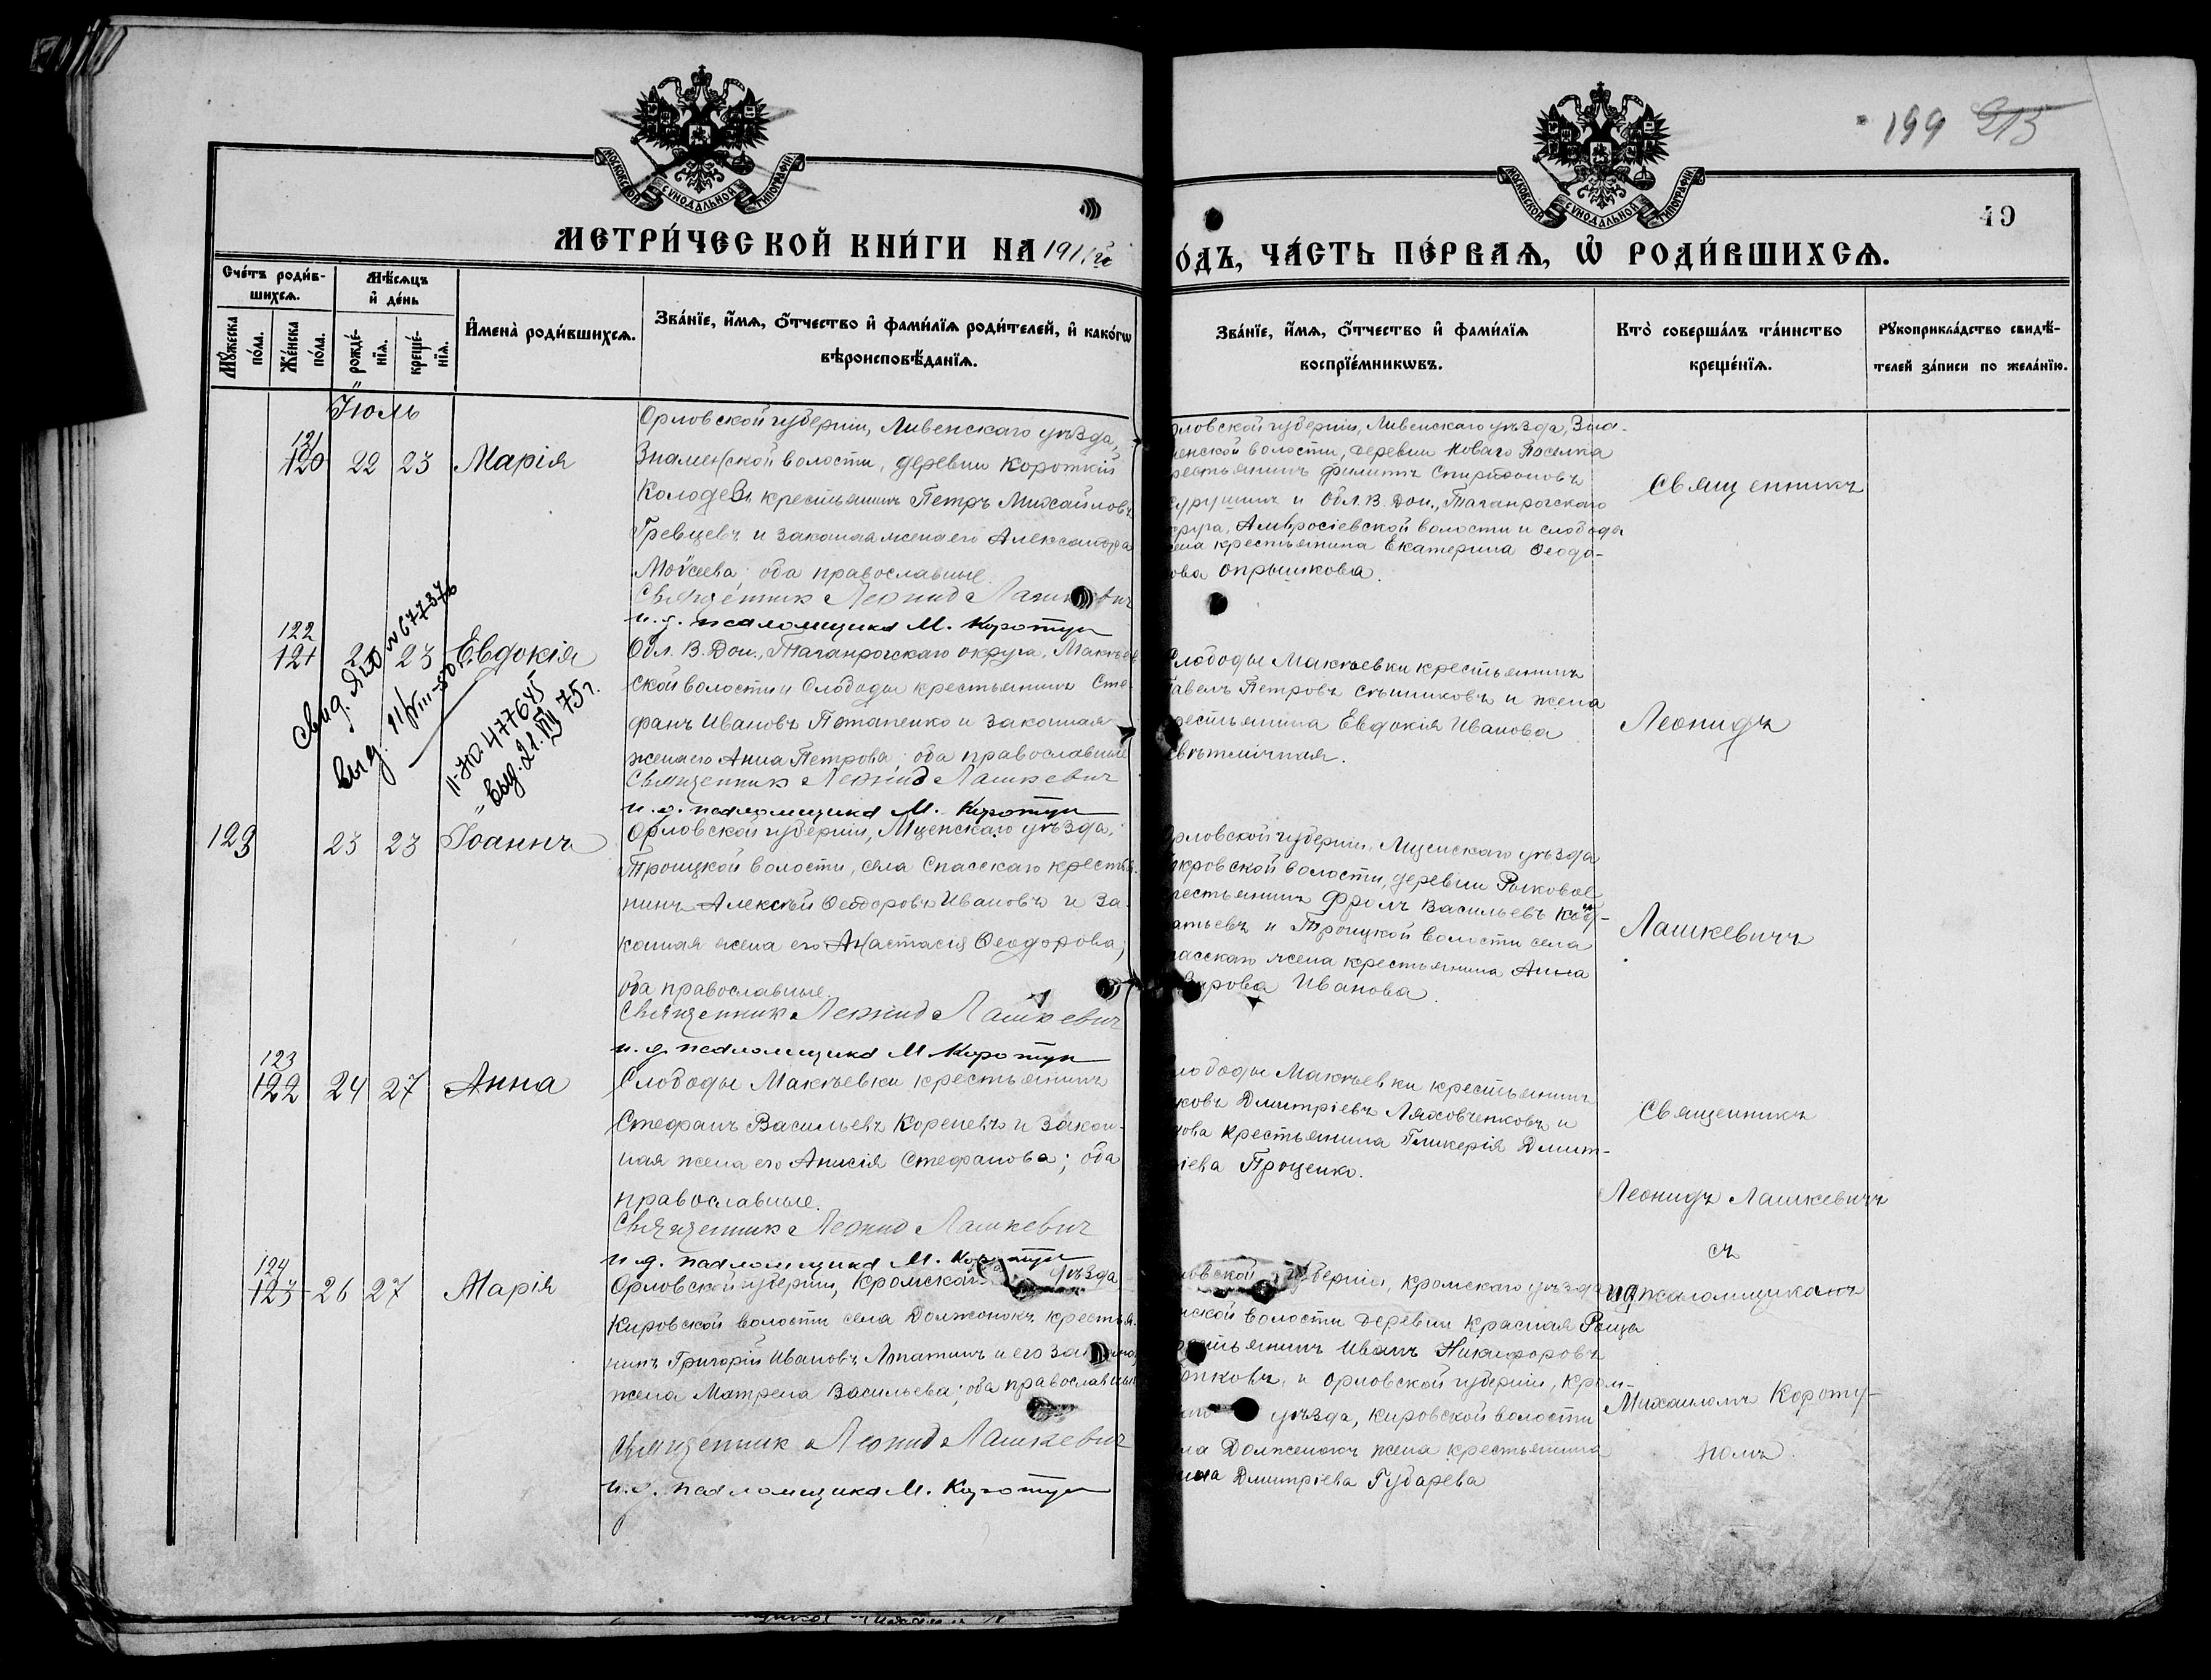 199 215
МОСКОВСКОЙ СУНОДАЛЬНОЙ ТИПОГРАФІИ
МОСКОВСКОЙ СУНОДАЛЬНОЙ ТИПОГРАФІИ
49
МЕТРИ́ЧЕСКОЙ КНИ́ГИ НА 1911й
О́ДЪ, ЧА́СТЬ ПЕ́РВАѦ, Ѡ҆ РОДИ́ВШИХСѦ.
Сче́тъ роди́в-
шихсѧ.
Мѹ́жеска по́ла.
Же́нска по́ла.
Мѣ́сѧцъ
и҆ де́нь
рожде́-
нїѧ.
креще́-
нїѧ.
И҆мена̀ роди́вшихсѧ.
Зва́нїе, и҆́мѧ, ѻ҆́тчество и҆ фами́лїѧ роди́телей, и҆ како́гѡ
вѣроисповѣ́данїѧ.
Зва́нїе, и҆́мѧ, ѻ҆́тчество и҆ фами́лїѧ
воспрїе́мникѡвъ.
Кто̀ соверша́лъ та́инство
креще́нїѧ.
Рѹкоприкла́дство свидѣ́-
телей за́писи по жела́нїю.
Іюль
121
120 22 23 Марія
Орловской губерніи, Ливенскаго уѣзда,
Знаменской волости, деревни Короткій
Колодезь крестьянинъ Петръ Михайловъ
Гревцевъ и законная жена его Александра
Моѵсеева; оба православные.
Священник Леонид Лашкевич
и. д. псаломщика М. Коротун
рловской губерніи, Ливенскаго уѣзда, Зна-
менской волости, деревни Новаго Поселка
рестьянинъ Филиппъ Спиридоновъ
и Обл. В. Дон., Таганрогскаго
круга, Амвросіевской волости и слободы
ена крестьянина Екатерина Ѳеодо-
ова Опрышкова.
Священникъ
122
121 23 Евдокія
Свид. ЯЮ №677376
выд. 11/VIII-50 г.
II-ЖД 477645
выд. 21.VIII 75 г.
Обл. В. Дон., Таганрогскаго округа, Макѣев
ской волости и Слободы крестьянинъ Сте-
фанъ Ивановъ Потапенко и законная
жена его Анна Петрова; оба православные
Священник Леонид Лашкевич
и. д. псаломщика М. Коротун
Слободы Макѣевки крестьянинъ
Павелъ Петровъ Сѣтниковъ и жена
рестьянина Евдокія Иванова
Свѣтличная.
Леонидъ
123 23 23 Іоаннъ
Орловской губерніи, Мценскаго уѣзда,
Троицкой волости, села Спасскаго крестья-
нинъ Алексѣй Ѳеодоровъ Ивановъ и за-
конная жена его Анастасія Ѳеодорова;
оба православные.
Священник Леонид Лашкевич
и. д. псаломщика М Коротун
Орловской губерніи, Мценскаго уѣзда
окровской волости, деревни Рыковое
рестьянинъ Фролъ Васильевъ
атьевъ и Троицкой волости села
пасскаго жена крестьянина Анна
Иванова.
Лашкевичъ
123
122 24 27 Анна
Слободы Макѣевки крестьянинъ
Стефанъ Васильевъ Кореневъ и закон-
ная жена его Анисія Стефанова; оба
православные.
Священник Леонид Лашкевич
и. д. псаломщика М. Коротун
лободы Макѣевки крестьянинъ
ковъ Дмитріевъ Ляховченковъ и
дова крестьянина Гликерія Дмит-
ріева Проценко.
Священникъ
Леонидъ Лашкевичъ
съ
124
123 26 27 Марія
Орловской губерніи, Кромскаго уѣзда
Кировской волости села Должонокъ крестья-
нинъ Григорій Ивановъ Лопатинъ и его законная
жена Матрена Васильева; оба православные
Священник Леонид Лашкевич
и. д. псаломщика М. Коротун
ловской губерніи, Кромскаго уѣзда
нской волости деревни Красная Роща
рестьянинъ Иванъ Никифоровъ
и Орловской губерніи, Кром-
уѣзда, Кировской волости
ла Долженокъ жена крестьянина
Дмитріева Губарева
ид псаломщикомъ
Михаиломъ Короту-
номъ.